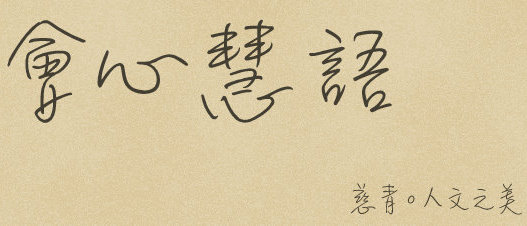 會心慧語
慈青。人文之美